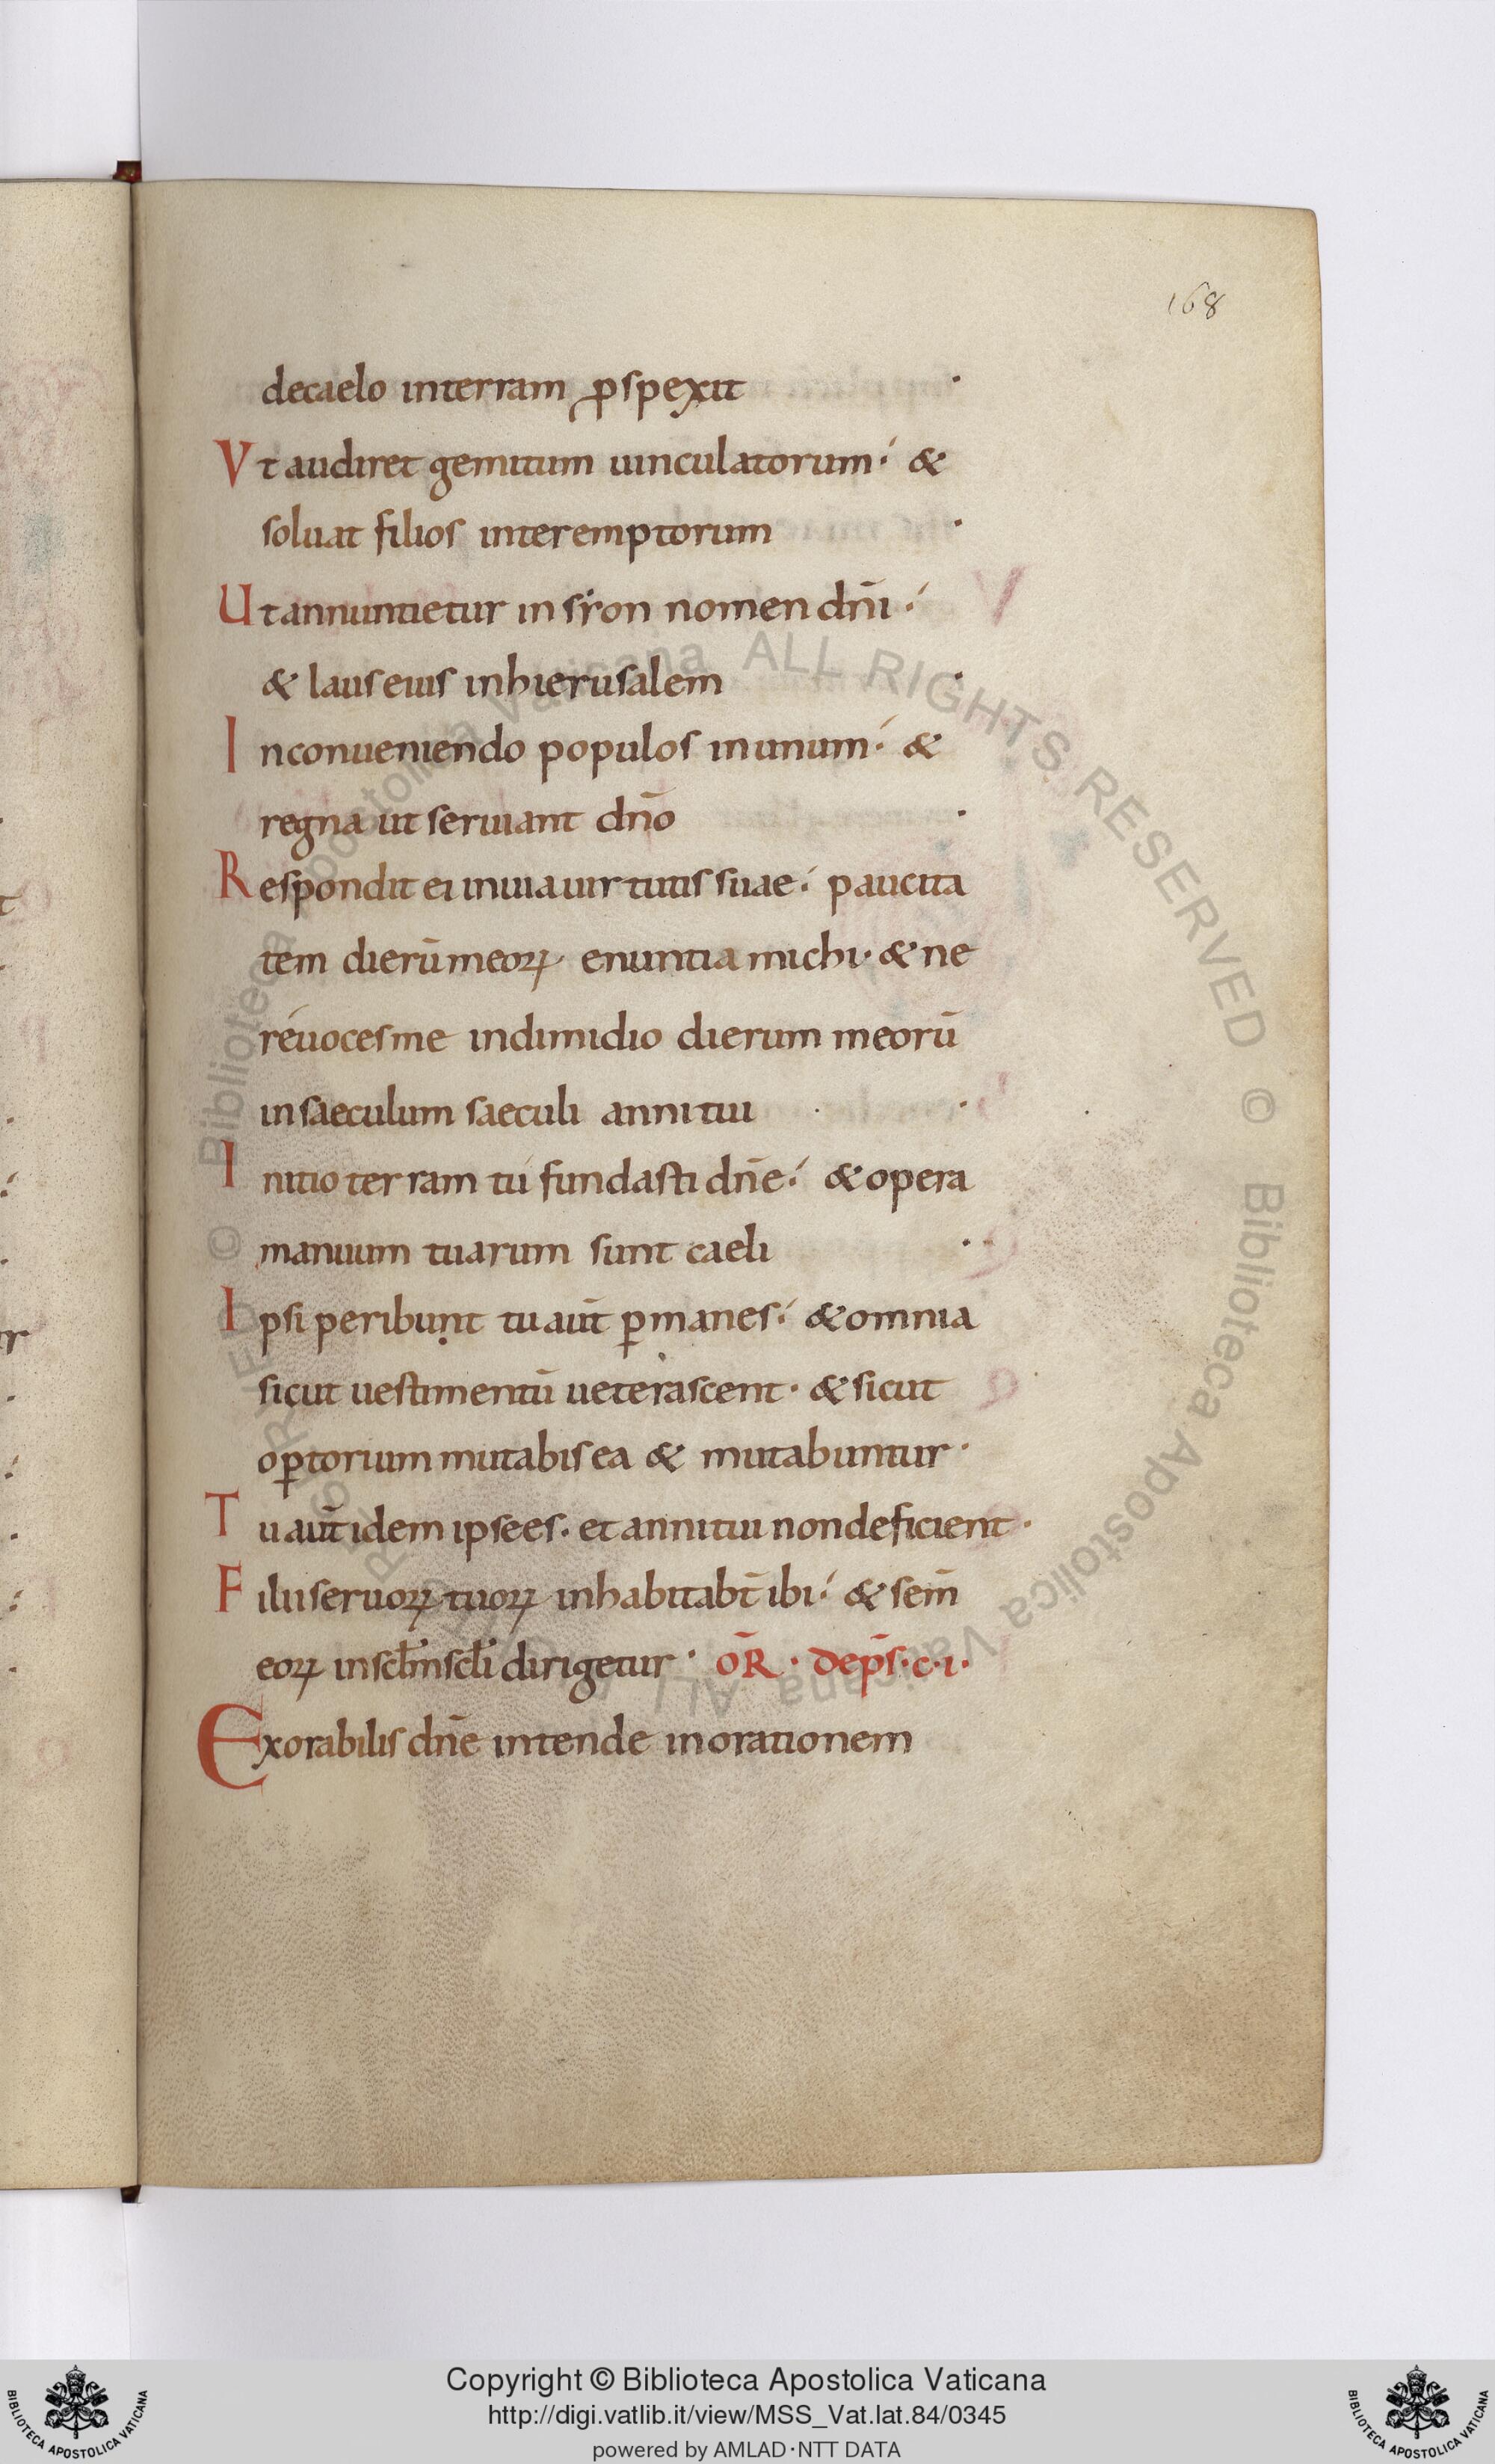 168
decaelo interram ꝓspexit ·
Vt audiret gemitum uinculatorum·´ &
soluat filios interemptorum ·
Ut annuntietur in sion nomen dñi ·´
& laus eius inhierusalem ·
Inconueniendo populos inunum·´ &
regna ut seruiant dño ·
Respondit ei inuia uirtutis suae·´ paucita
tem dierū meoꝝ enuntia michi· & ne
reuoces me indimidio dierum meorū
insaeculum saeculi anni tui ·
Initio terram tú fundasti dñe·´ & opera
manuum tuarum sunt caeli ·
Ipsi peribunt tu aūt ꝑmanes·´ & omnia
sicut uestimentū ueterascent· & sicut
oꝑtorium mutabis ea & mutabuntur·
Tu aūt idem ipse es· et anni tui non deficient·
Filii seruoꝝ tuoꝝ inhabitabt̄ ibi·´ & sem̄
eoꝝ insctm̄ sctī dirigetur· OR̄· dep̄s·c·i·
Exorabilis dñe intende inorationem
Copyright © Biblioteca Apostolica Vaticana
http://digi.vatlib.it/view/MSS_Vat.lat.84/0345
powered by AMLAD·NTT DATA
BIBLIOTECA APOSTOLICA VATICANA
BIBLIOTECA APOSTOLICA VATICANA
© Biblioteca Apostolica Vaticana ALL RIGHTS RESERVED © Biblioteca Apostolica Vaticana ALL RIGHTS RESERVED